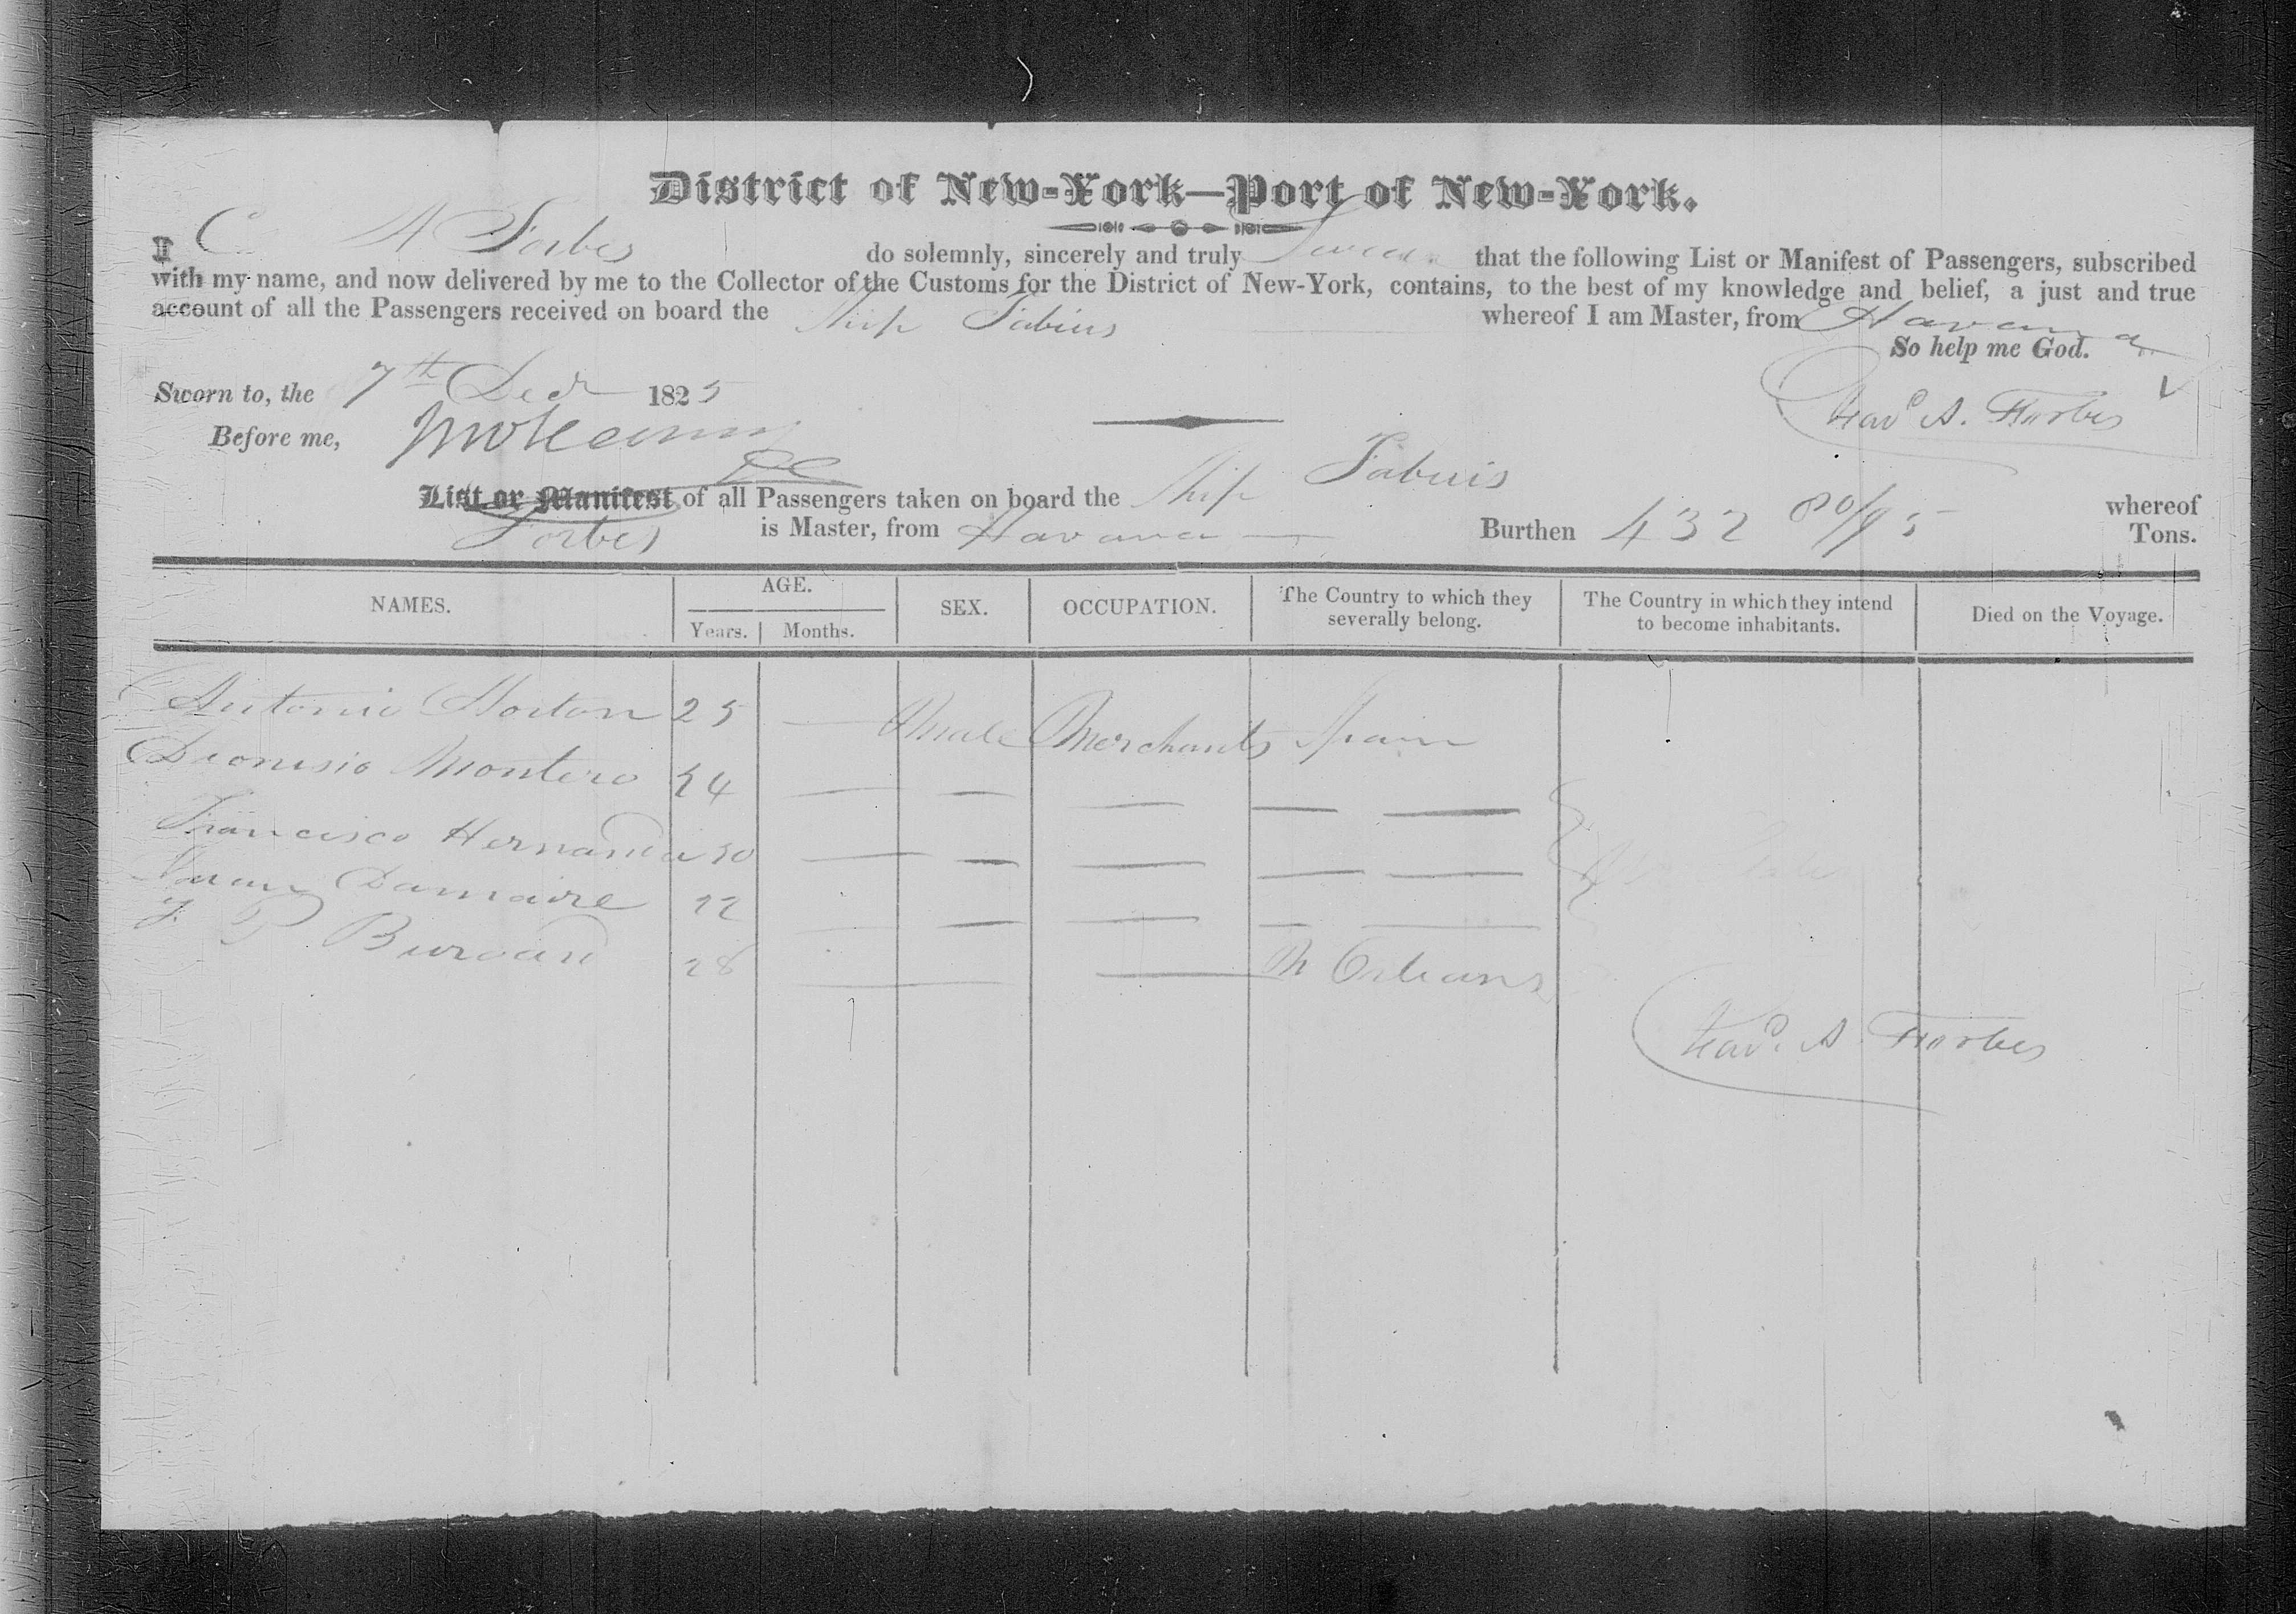 District of New-York—Port of New-York.
I C A Forbes do solemnly, sincerely and truly Swear that the following List or Manifest of Passengers, subscribed
with my name, and now delivered by me to the Collector of the Customs for the District of New-York, contains, to the best of my knowledge and belief, a just and true
account of all the Passengers received on board the Ship Sabina whereof I am Master, from Havana
So help me God.
Sworn to, the 7th Decr 1825
Chas A. Forbes
Before me,
List or Manifest of all Passengers taken on board the Ship Sabina whereof
Forbes is Master, from Havana Burthen 432 80/95 Tons.
NAMES. AGE. SEX. OCCUPATION. The Country to which they severally belong. The Country in which they intend to become inhabitants. Died on the Voyage.
Years. Months.
Antonio 25 — Male Merchants Spain
Dionisio Montero 34 — — — — —
Francisco 30 — — — — —
Juan Damaire 22 — — — — —
28 — — N Orleans
Chas. A Forbes